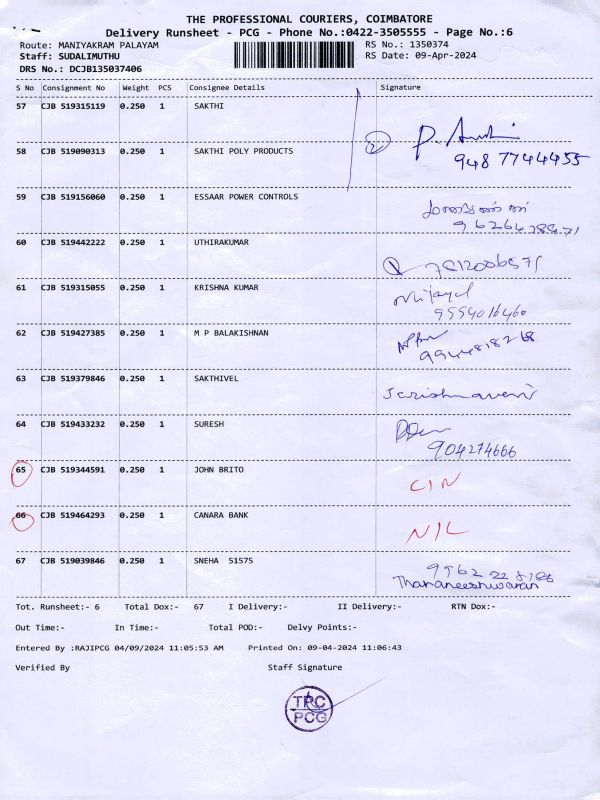 THE PROFESSIONAL COURIERS, COIMBATORE
Delivery Runsheet - PCG - Phone No.:0422-3505555 - Page No.:6
Route: MANIYAKRAM PALAYAM RS No.: 1350374
Staff: SUDALIMUTHU RS Date: 09-Apr-2024
DRS No.: DCJB135037406
S No Consignment No Weight PCS Consignee Details Signature
57 CJB 519315119 0.250 1 SAKTHI
2 P.
58 CJB 519090313 0.250 1 SAKTHI POLY PRODUCTS 948 7744455
59 CJB 519156060 0.250 1 ESSAAR POWER CONTROLS
60 CJB 519442222 0.250 1 UTHIRAKUMAR
61 CJB 519315055 0.250 1 KRISHNA KUMAR
62 CJB 519427385 0.250 1 M P BALAKISHNAN
9944818268
63 CJB 519379846 0.250 1 SAKTHIVEL
64 CJB 519433232 0.250 1 SURESH
904274666
65 CJB 519344591 0.250 1 JOHN BRITO
66 CJB 519464293 0.250 1 CANARA BANK NIL
67 CJB 519039846 0.250 1 SNEHA 51575
Thananeeshwaran
Tot. Runsheet:- 6 Total Dox:- 67 I Delivery:- II Delivery:- RTN Dox:-
Out Time:- In Time:- Total POD:- Delvy Points:-
Entered By :RAJIPCG 04/09/2024 11:05:53 AM Printed On: 09-04-2024 11:06:43
Verified By Staff Signature
TPC
PCG